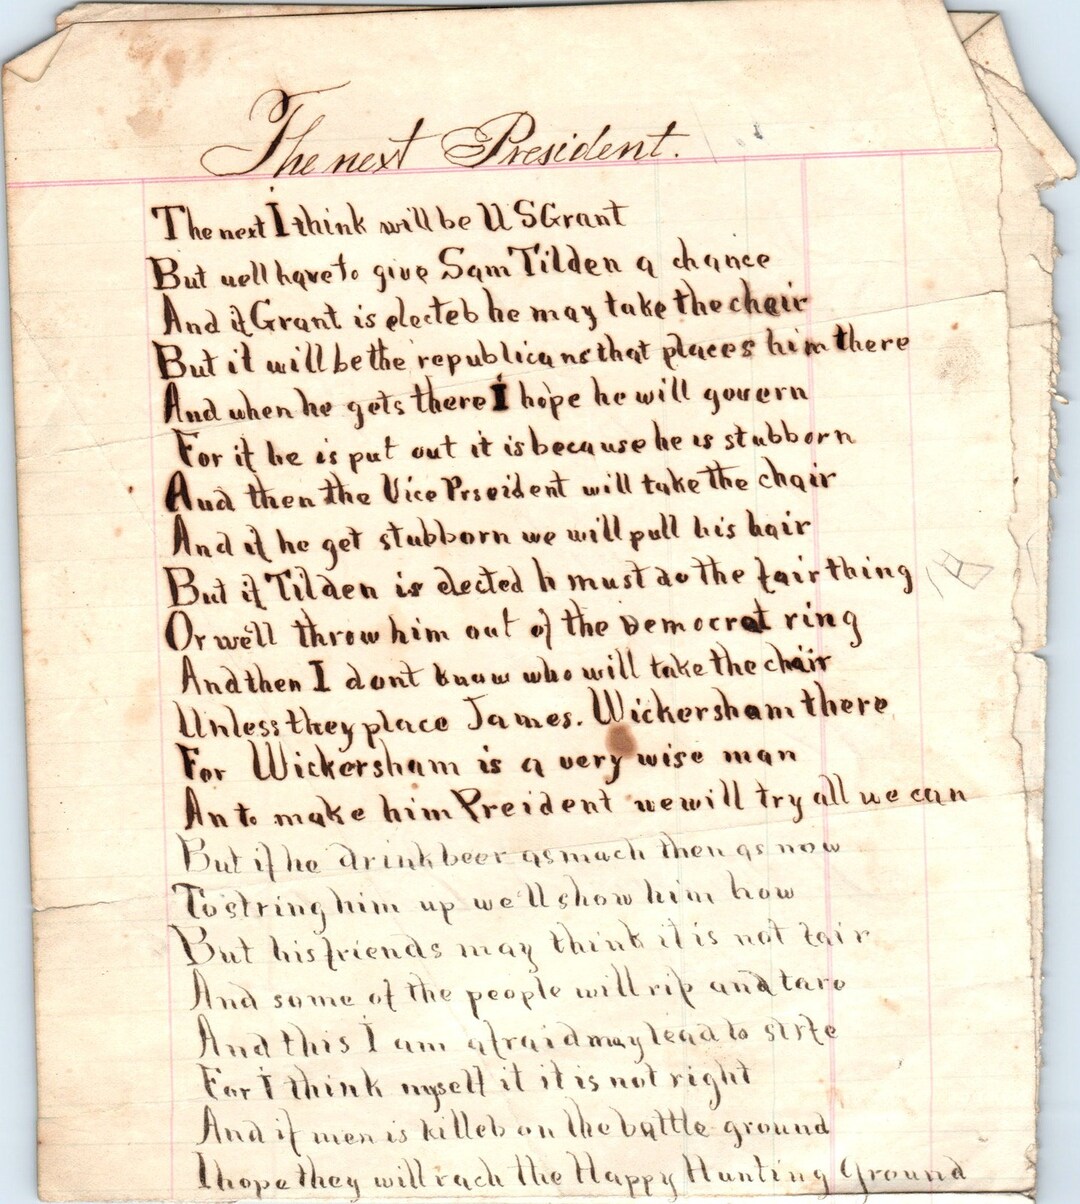 The next President.
The next I think will be U S Grant
But well have to give Sam Tilden a chance
And if Grant is electeb he may take the chair
But it will be the republicans that places him there
And when he gets there I hope he will govern
For if he is put out it is because he is stubborn
And then the Vice Prseident will take the chair
And if he get stubborn we will pull his hair
But if Tilden is elected h must do the fair thing
Or we'll throw him out of the Democrat ring
And then I dont know who will take the chair
Unless they place James. Wickersham there
For Wickersham is a very wise man
An to make him Preident we will try all we can
But if he drink beer as mach then as now
To string him up we'll show him how
But his friends may think it is not fair
And some of the people will rip and tare
And this I am afraid may lead to strfe
For I think myself it it is not right
And if men is killeb on the battle ground
I hope they will rach the Happy Hunting Ground